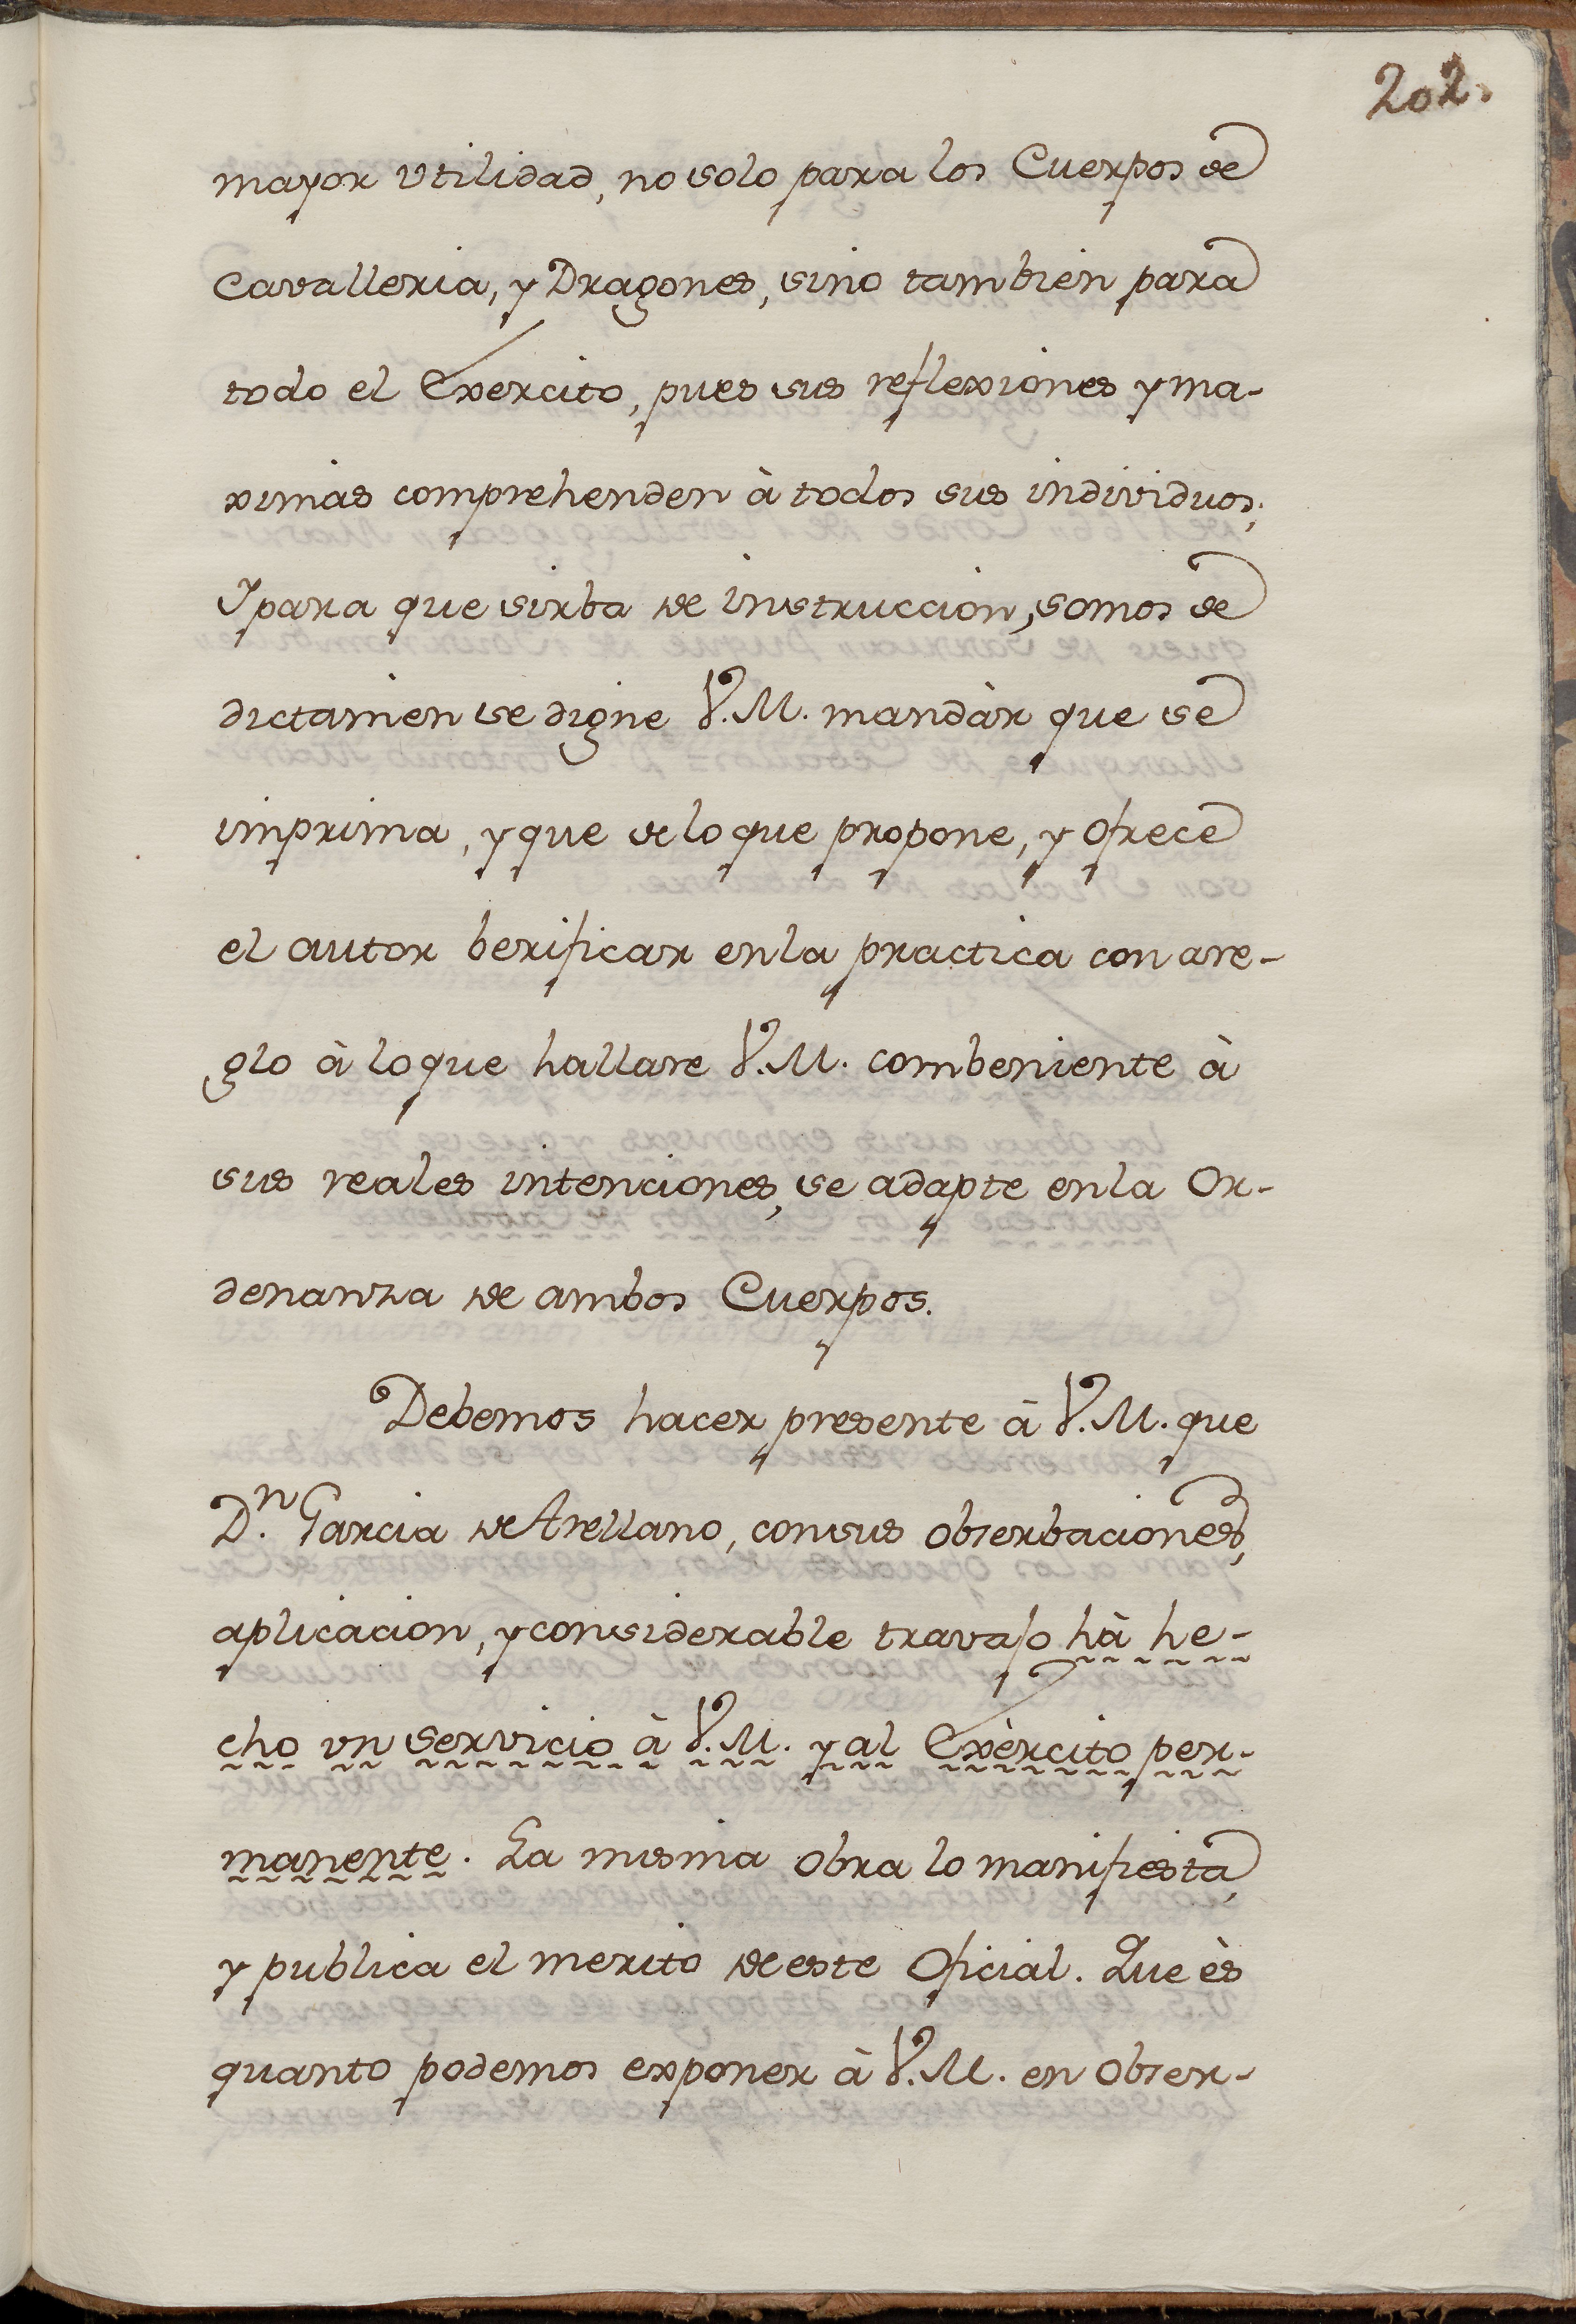 202.
mayor vtilidad, no solo para los Cuerpos de
Cavalleria, y Dragones, sino tambien para
todo el Exercito, pues sus reflexiones y ma-
ximas comprehenden à todos sus individuos;
Y para que sirba de instruccion, somos de
dictamen se digne V.M. mandàr que se
imprima, y que de lo que propone, y ofrece
el autor berificar en la practica con are-
glo à lo que hallare V.M. combeniente à
sus reales intenciones, se adapte en la Or-
denanza de ambos Cuerpos.
Debemos hacer presente à V.M. que
Dn. Garcia de Arellano, con sus obserbaciones,
aplicacion, y considerable travajo hà he-
cho vn servicio à V.M. y al Exèrcito per-
manente. La misma obra lo manifiesta,
y publica el merito de este Oficial. Que ès
quanto podemos exponer à V.M. en obser-